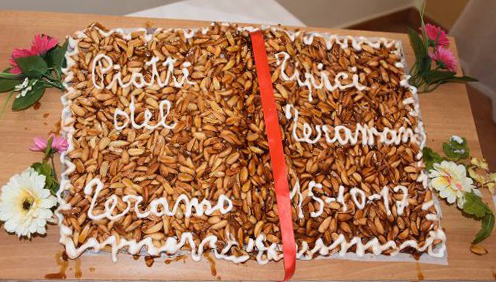 Piatti Tipici
del Teraman
Teramo 15-10-17